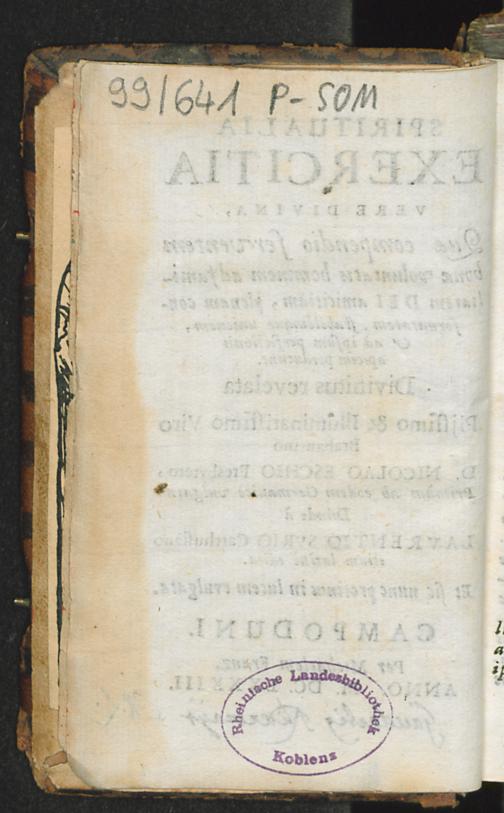 99/641 P-SOM
SPIRITUALIA
EXERCITIA
VERE DIVINA,
Quæ compendio ferventem
bonæ voluntatis hominem ad fami-
liarem DEI amicitiam, plenam con-
formitatem, stabilemque unionem,
& ad ipsum perfectionis
apicem perducunt.
Divinitus revelata
Piissimo & Illuminatissimo Viro
D. NICOLAO ESCHIO Presbytero,
Primùm ab eodem Germanicè vulgata
Deinde à
LAVRENTIO SVRIO Carthusiano
etiam latinè edita.
Et sic nunc protinus in lucem evulgata.
CAMPODUNI.
Per
ANNO M. DC.
Rheinische Landesbibliothek
Koblenz